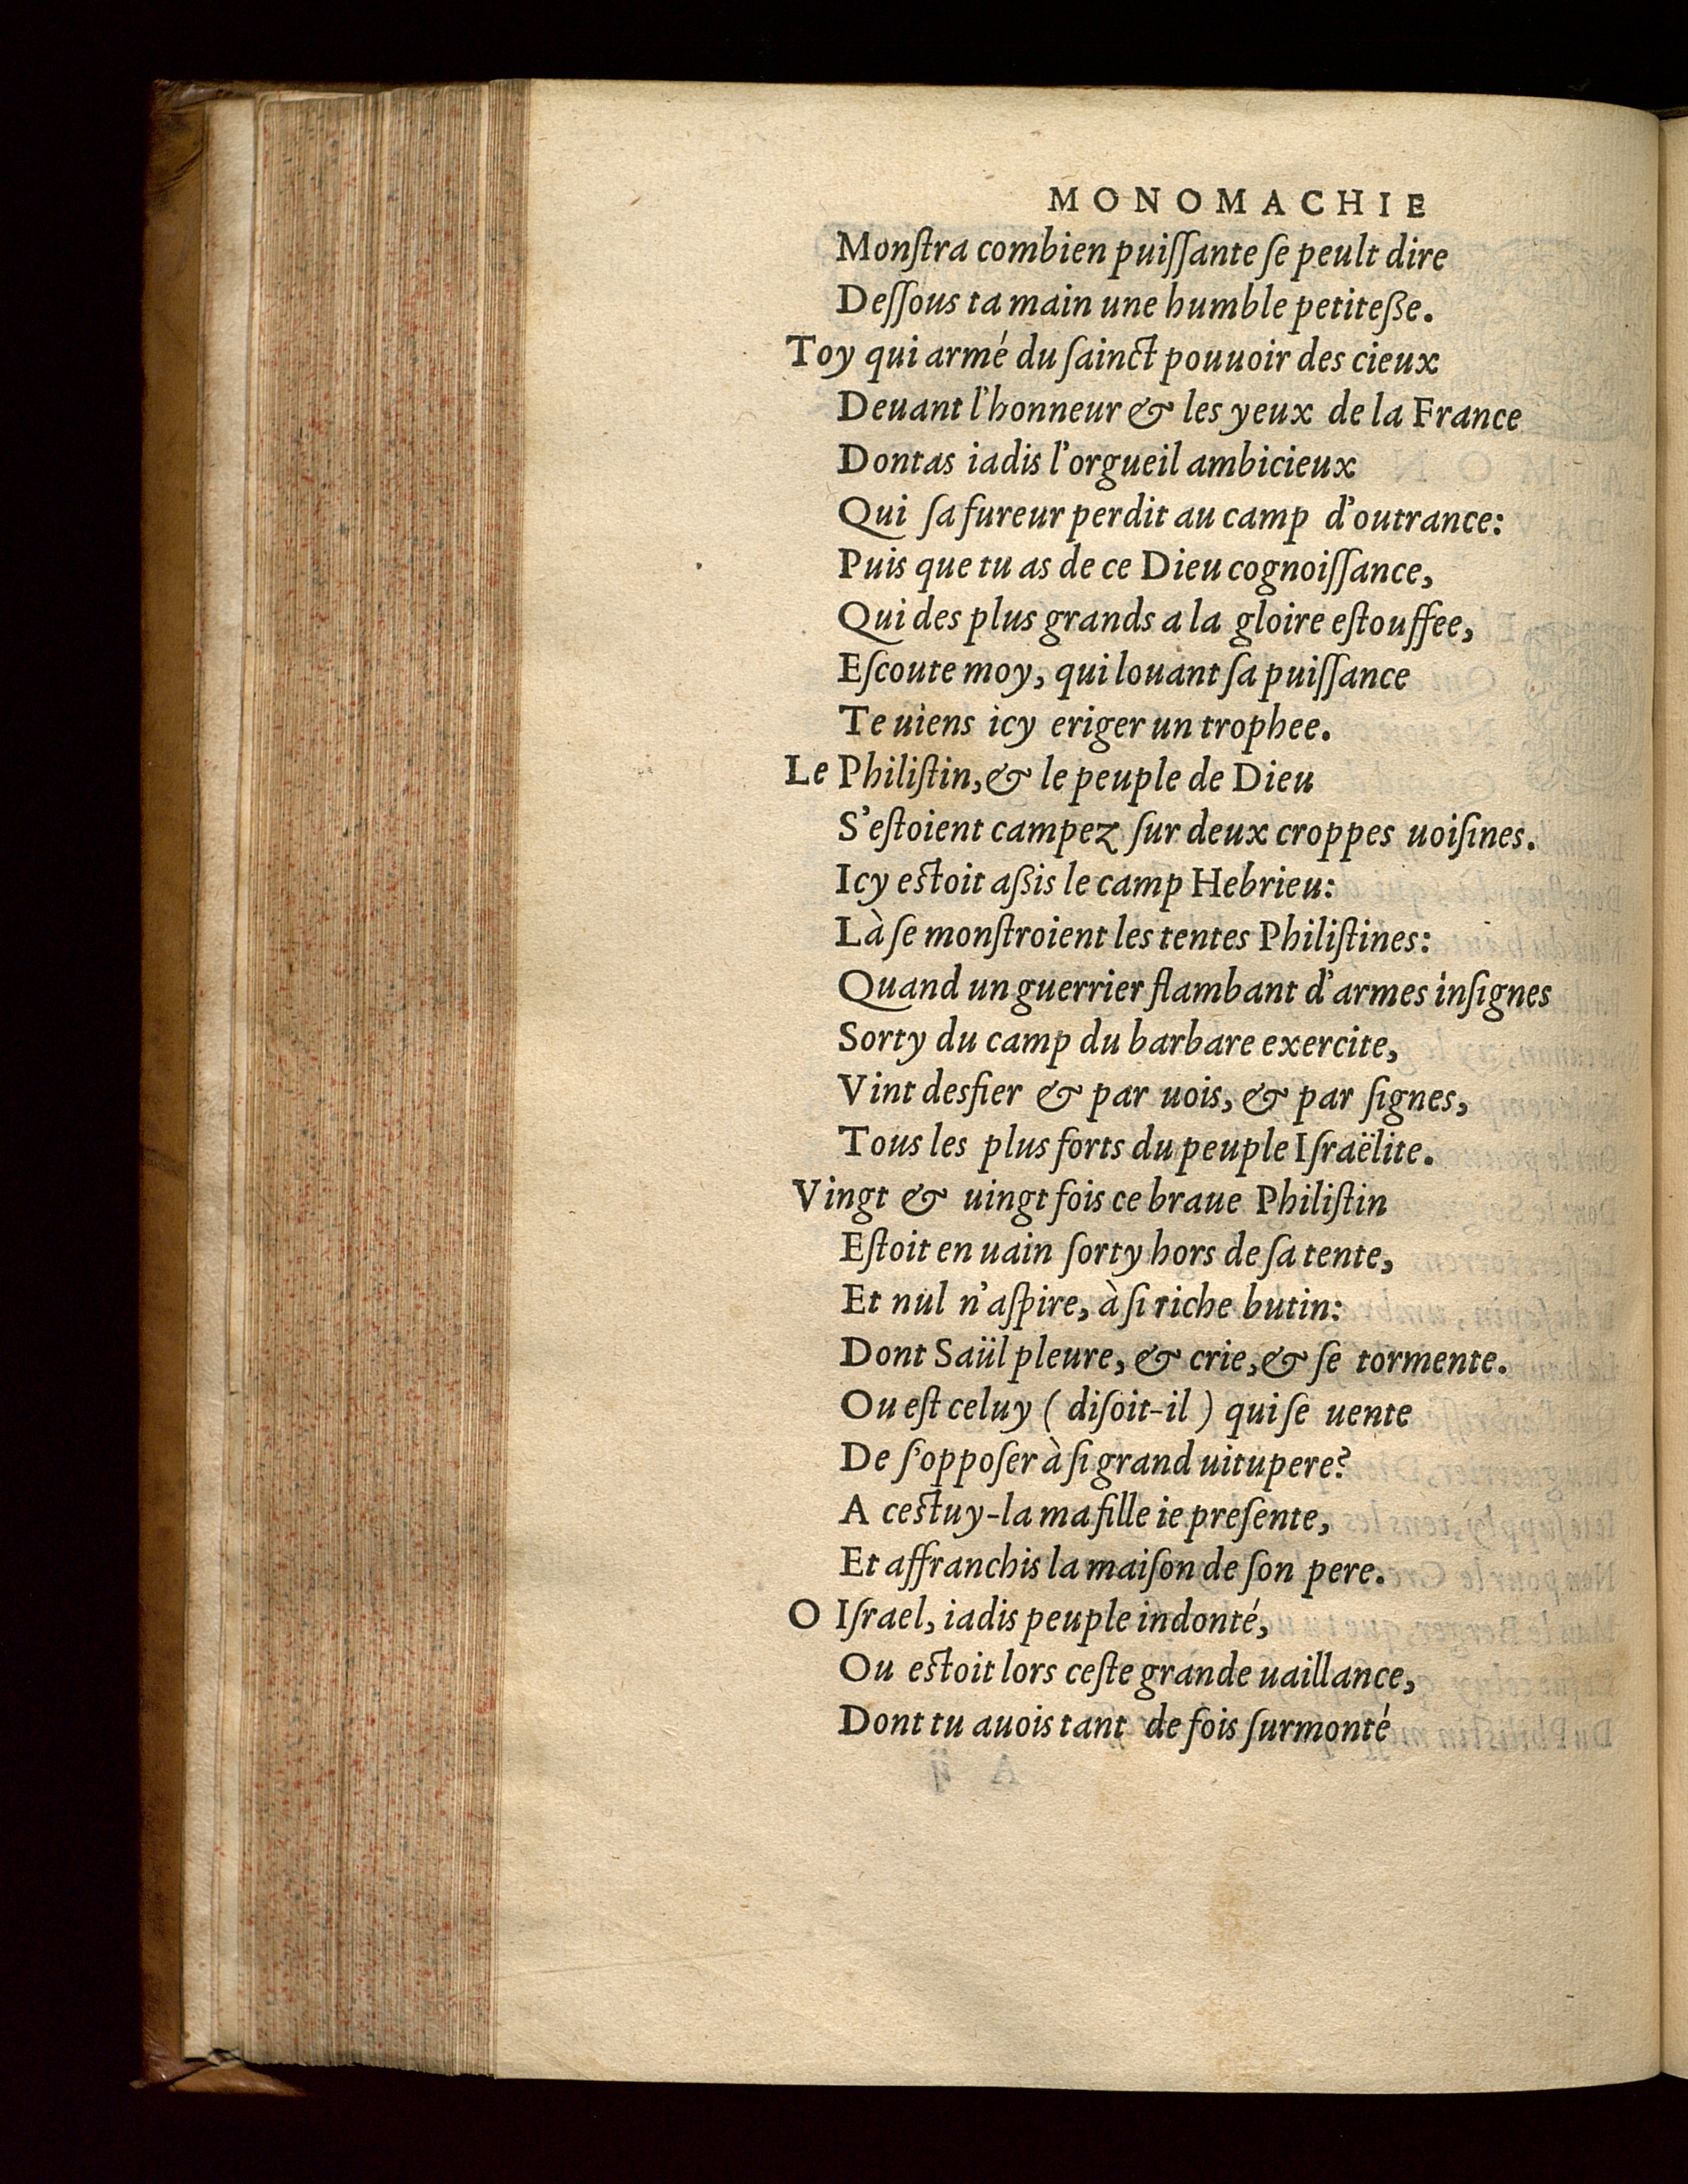 MONOMACHIE
Monſtra combien puiſſante ſe peult dire
Deſſous ta main une humble petiteße.
Toy qui armé du ſainct pouuoir des cieux
Deuant l'honneur & les yeux de la France
Dontas iadis l'orgueil ambicieux
Qui ſa fureur perdit au camp d'outrance:
Puis que tu as de ce Dieu cognoiſſance,
Qui des plus grands a la gloire eſtouffee,
Eſcoute moy, qui louant ſa puiſſance
Te uiens icy eriger un trophee.
Le Philiſtin, & le peuple de Dieu
S'eſtoient campez ſur deux croppes uoiſines.
Icy eſtoit aßis le camp Hebrieu:
Là ſe monſtroient les tentes Philiſtines:
Quand un guerrier flambant d'armes inſignes
Sorty du camp du barbare exercite,
Vint desfier & par uois, & par ſignes,
Tous les plus forts du peuple Iſraëlite.
Vingt & uingt fois ce braue Philiſtin
Eſtoit en uain ſorty hors de ſa tente,
Et nul n'aſpire, à ſi riche butin:
Dont Saül pleure, & crie, & ſe tormente.
Ou eſt celuy ( diſoit-il ) qui ſe uente
De ſ'oppoſer à ſi grand uitupere?
A ceſtuy-la ma fille ie preſente,
Et affranchis la maiſon de ſon pere.
O Iſrael, iadis peuple indonté,
Ou eſtoit lors ceſte grande uaillance,
Dont tu auois tant de fois ſurmonté